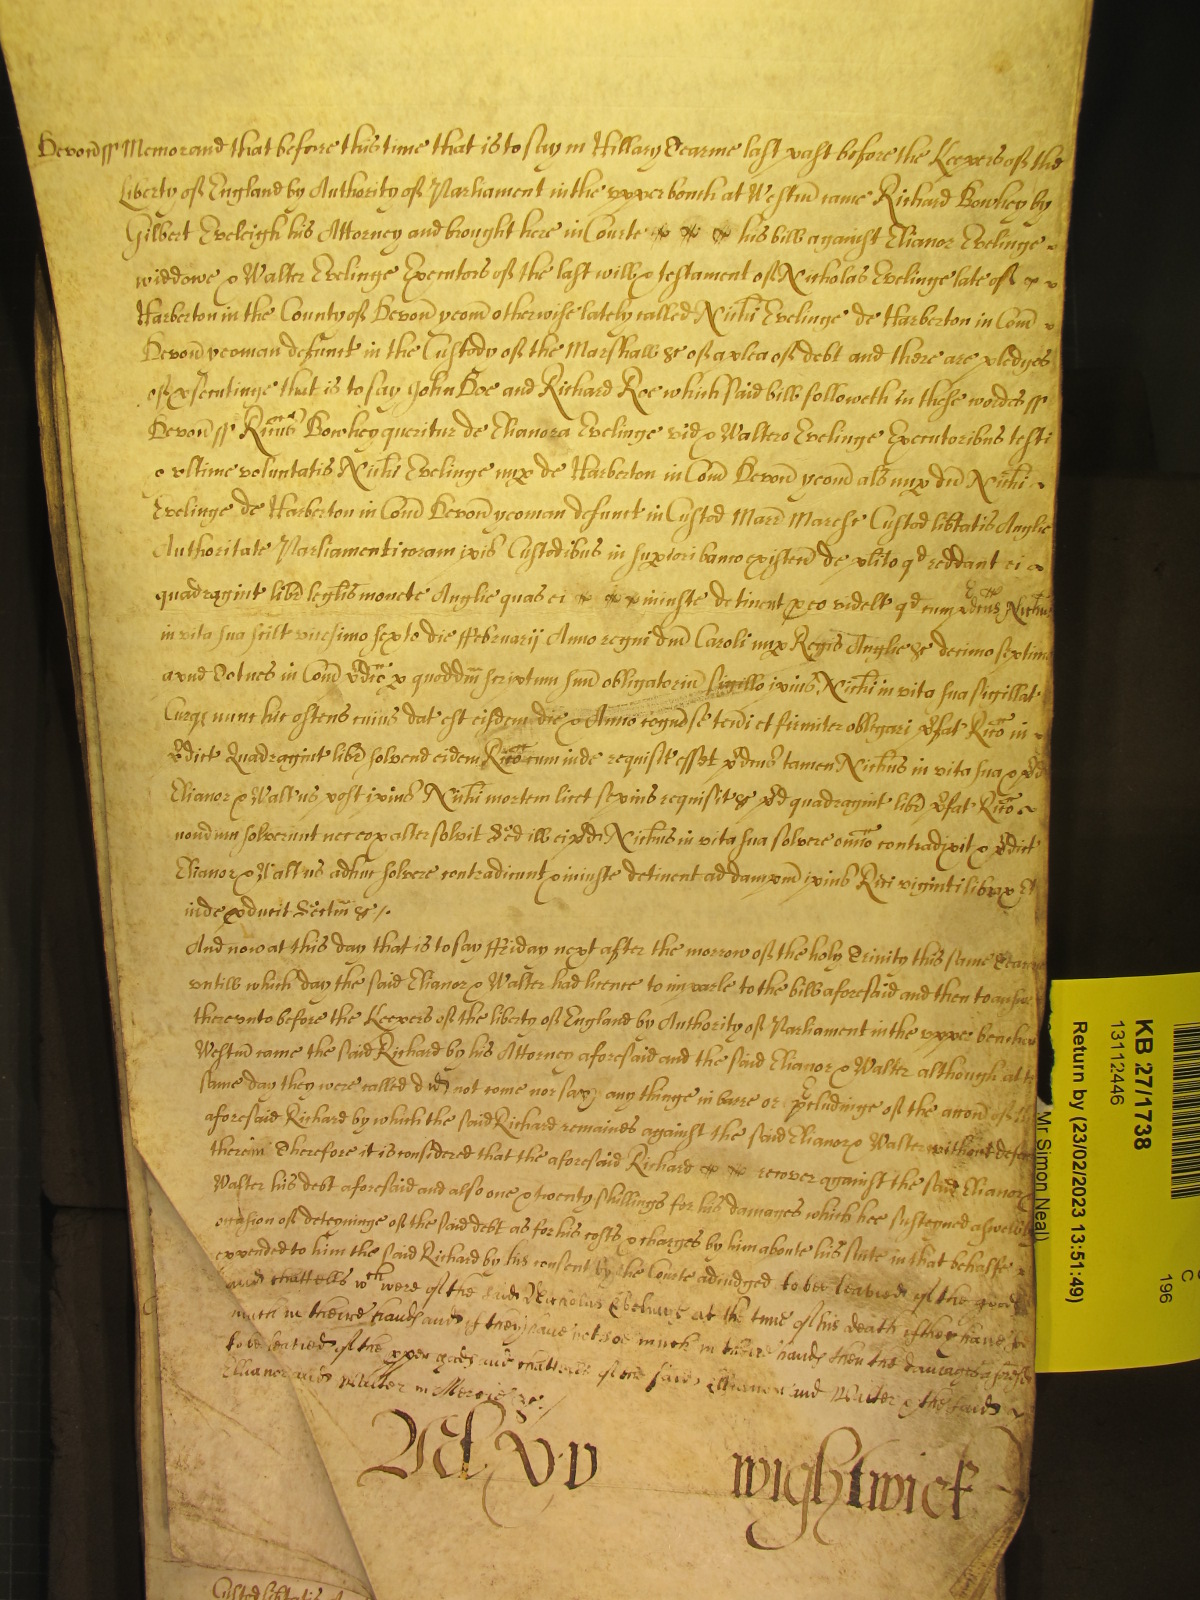 Devon ss Memorand that before this time that is to say in Hillary Tearme last past before the Keepers of the
Liberty of England by Authority of Parliament in the upper bench at Westm came Richard Bowhey by
Gilbert Eveleigh his Attorney and brought here in Courte his bill against Elianor Evelinge
widdowe & Walter Evelinge Executors of the last will & testament of Nicholas Evelinge late of
Harberton in the County of Devon yeom otherwise lately called Nichi Evelinge de Harberton in Com
Devon yeoman defunct in the Custody of the Marshall &c of a plea of debt and there are pledges
of psecutinge that is to say John Doe and Richard Roe which said bill followeth in these wordes ss
Devon ss Ricus Bowhey queritur de Elianora Evelinge vid & Waltero Evelinge Executoribus testi
& ultime voluntatis Nichi Evelinge nup de Harberton in Com Devon yeom als nup dci Nichi
Evelinge de Harberton in Com Devon yeoman defunct in Custod Marr Maresc Custod libtatis Anglie
Authoritate Parliamenti coram ipis Custodibus in supiori banco existen de plito qd reddant ei
quadragint libr leglis monete Anglie quas ei iniuste detinent p eo videlt qd cum pdcus Nichus
in vita sua scilt vicesimo sexto die ffebruarij Anno regni dni Caroli nup Regis Anglie &c decimo septimo
apud Totnes in Com pdic p quoddm scriptum suu obligatoriu sigillo ipius Nichi in vita sua sigillat
Curq nunc hic ostens cuius dat est eisdem die & Anno cogn se teneri et firmiter obligari pfat Rico in
pdict Quadragint libr solvend eidem Rico cum inde requisit esset pdcus tamen Nichus in vita sua & pd
Elianor & Waltus post ipius Nichi mortem licet sepius requisit &c pd quadragint libr pfat Rico
nondum solverunt nec eox alter solvit Sed ill ei pd Nichus in vita sua solvere omio contradixit & pdict
Elianor & Waltus adhuc solvere contradicunt & iniuste detinent ad dampnu ipius Rici viginti librax Et
inde pducit Sectm &c
And now at this day that is to say ffriday next after the morrow of the holy Trinity this same Tearme
untill which day the said Elianor & Walter had licence to imparle to the bill aforesaid and then to answere
thereunto before the Keepers of the liberty of England by Authority of Parliament in the upper bench
Westm came the said Richard by his Attorney aforesaid and the said Elianor & Walter although at the
same day they were called did not come nor say any thinge in barre or pcludinge of the accon of the
aforesaid Richard by which the said Richard remaines against the said Elianor & Walter without defence
therein Therefore it is considered that the aforesaid Richard recover against the said Elianor &
Walter his debt aforesaid and also one & twenty shillings for his damages which hee susteyned aswell by
occasion of deteyninge of the said debt as for his costs & charges by him aboute his suite in that behalfe
expended to him the said Richard by his consent by the Courte adiudged to bee leavied of the goods
and chattells wch were of the said Nicholas Evelinge at the time of his death if they have soe
much in theire hands and if they have not soe much in theire hands then the damages aforesd
to be leavied of the pper goods and chattells of the said Elianor and Walter & the said
Elianor and Walter in Mercie &c
wightwick
Custod libtatis A
KB 27/1738
13112446
Return by (23/02/2023 13:51:49)
Mr Simon Neal)
C
196